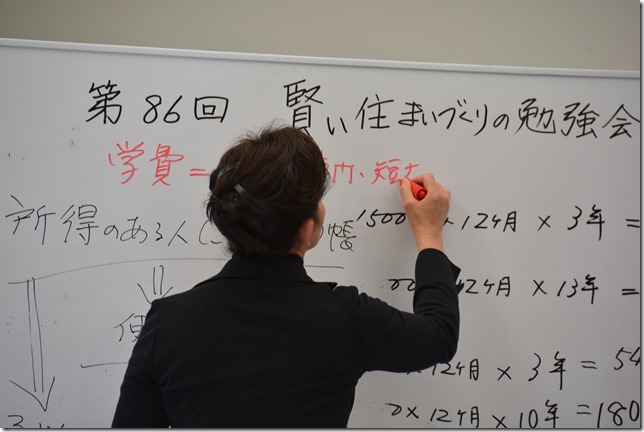 第86回 賢い住まいづくりの勉強会
学費= 門、短大
所得のある人に 帳
1500 ×12ヶ月 × 3年 =
00 12ヶ月 × 13年 =
×12ヶ月 × 3年 = 54
0 × 12ヶ月 × 10年 = 180